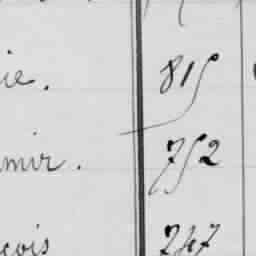 ie. 815
mir. 752
çois 747